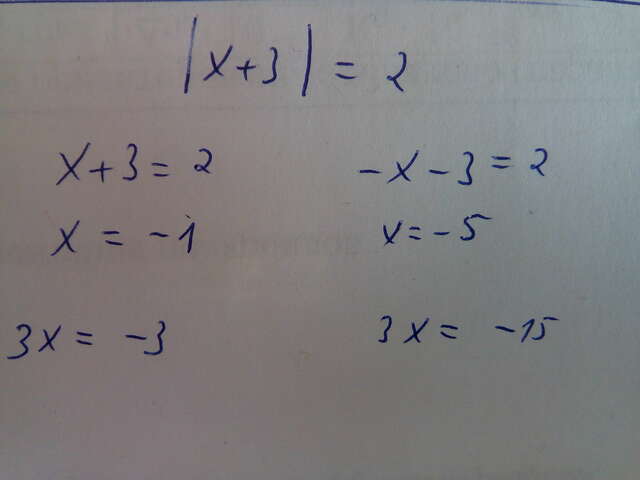 |x+3| = 2
x+3 = 2
-x-3 = 2
x = -1
x = -5
3x = -3
3x = -15